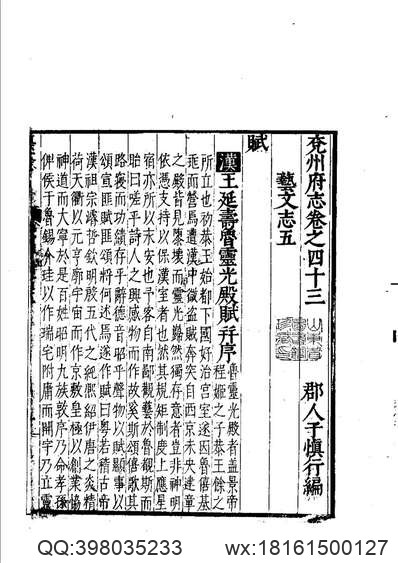 兖州府志卷之四十三
藝文志五
郡人于慎行編
賦
漢王延壽魯靈光殿賦并序
魯靈光殿者盖景帝
程姬之子恭王餘之
所立也初恭王始都下國好治宮室遂因魯僖基
兆而營焉遭漢中微盜賊奔突自西京未央建章
之殿皆見隳壞而靈光巋然獨存意者豈非神明
依憑支持以保漢室者也然其規矩制度上應星
宿亦所以永安也予客自南鄙觀藝於魯覩斯而
眙曰嗟乎詩人之興感物而作故奚斯頌僖歌其
路寢而功績存乎辭德音昭乎聲物以賦顯事以
頌宣匪賦匪頌將何述焉遂作賦曰粵若稽古帝
漢祖宗濬哲欽明殷五代之純熙紹伊唐之炎精
荷天衢以元亨廓宇宙而作京敷皇極以創業協
神道而大寧於是百姓昭明九族敦序乃命孝孫
俾侯于魯錫介珪以作瑞宅附庸而開宇乃立靈
QQ:398035233
wx:18161500127